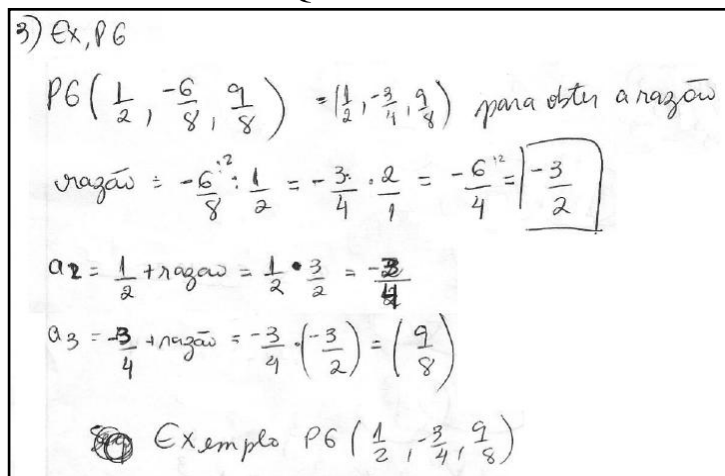 3) Ex, PG
PG(1/2, -6/8, 9/8) = (1/2, -3/4, 9/8) para obter a razão
razão = -6/8 :2 : 1/2 = -3/4 · 2/1 = -6/4 :2 = -3/2
a2 = 1/2 + razao = 1/2 • 3/2 = -3/4
a3 = -3/4 + razão = -3/4 · (-3/2) = (9/8)
Exemplo PG (1/2, -3/4, 9/8)